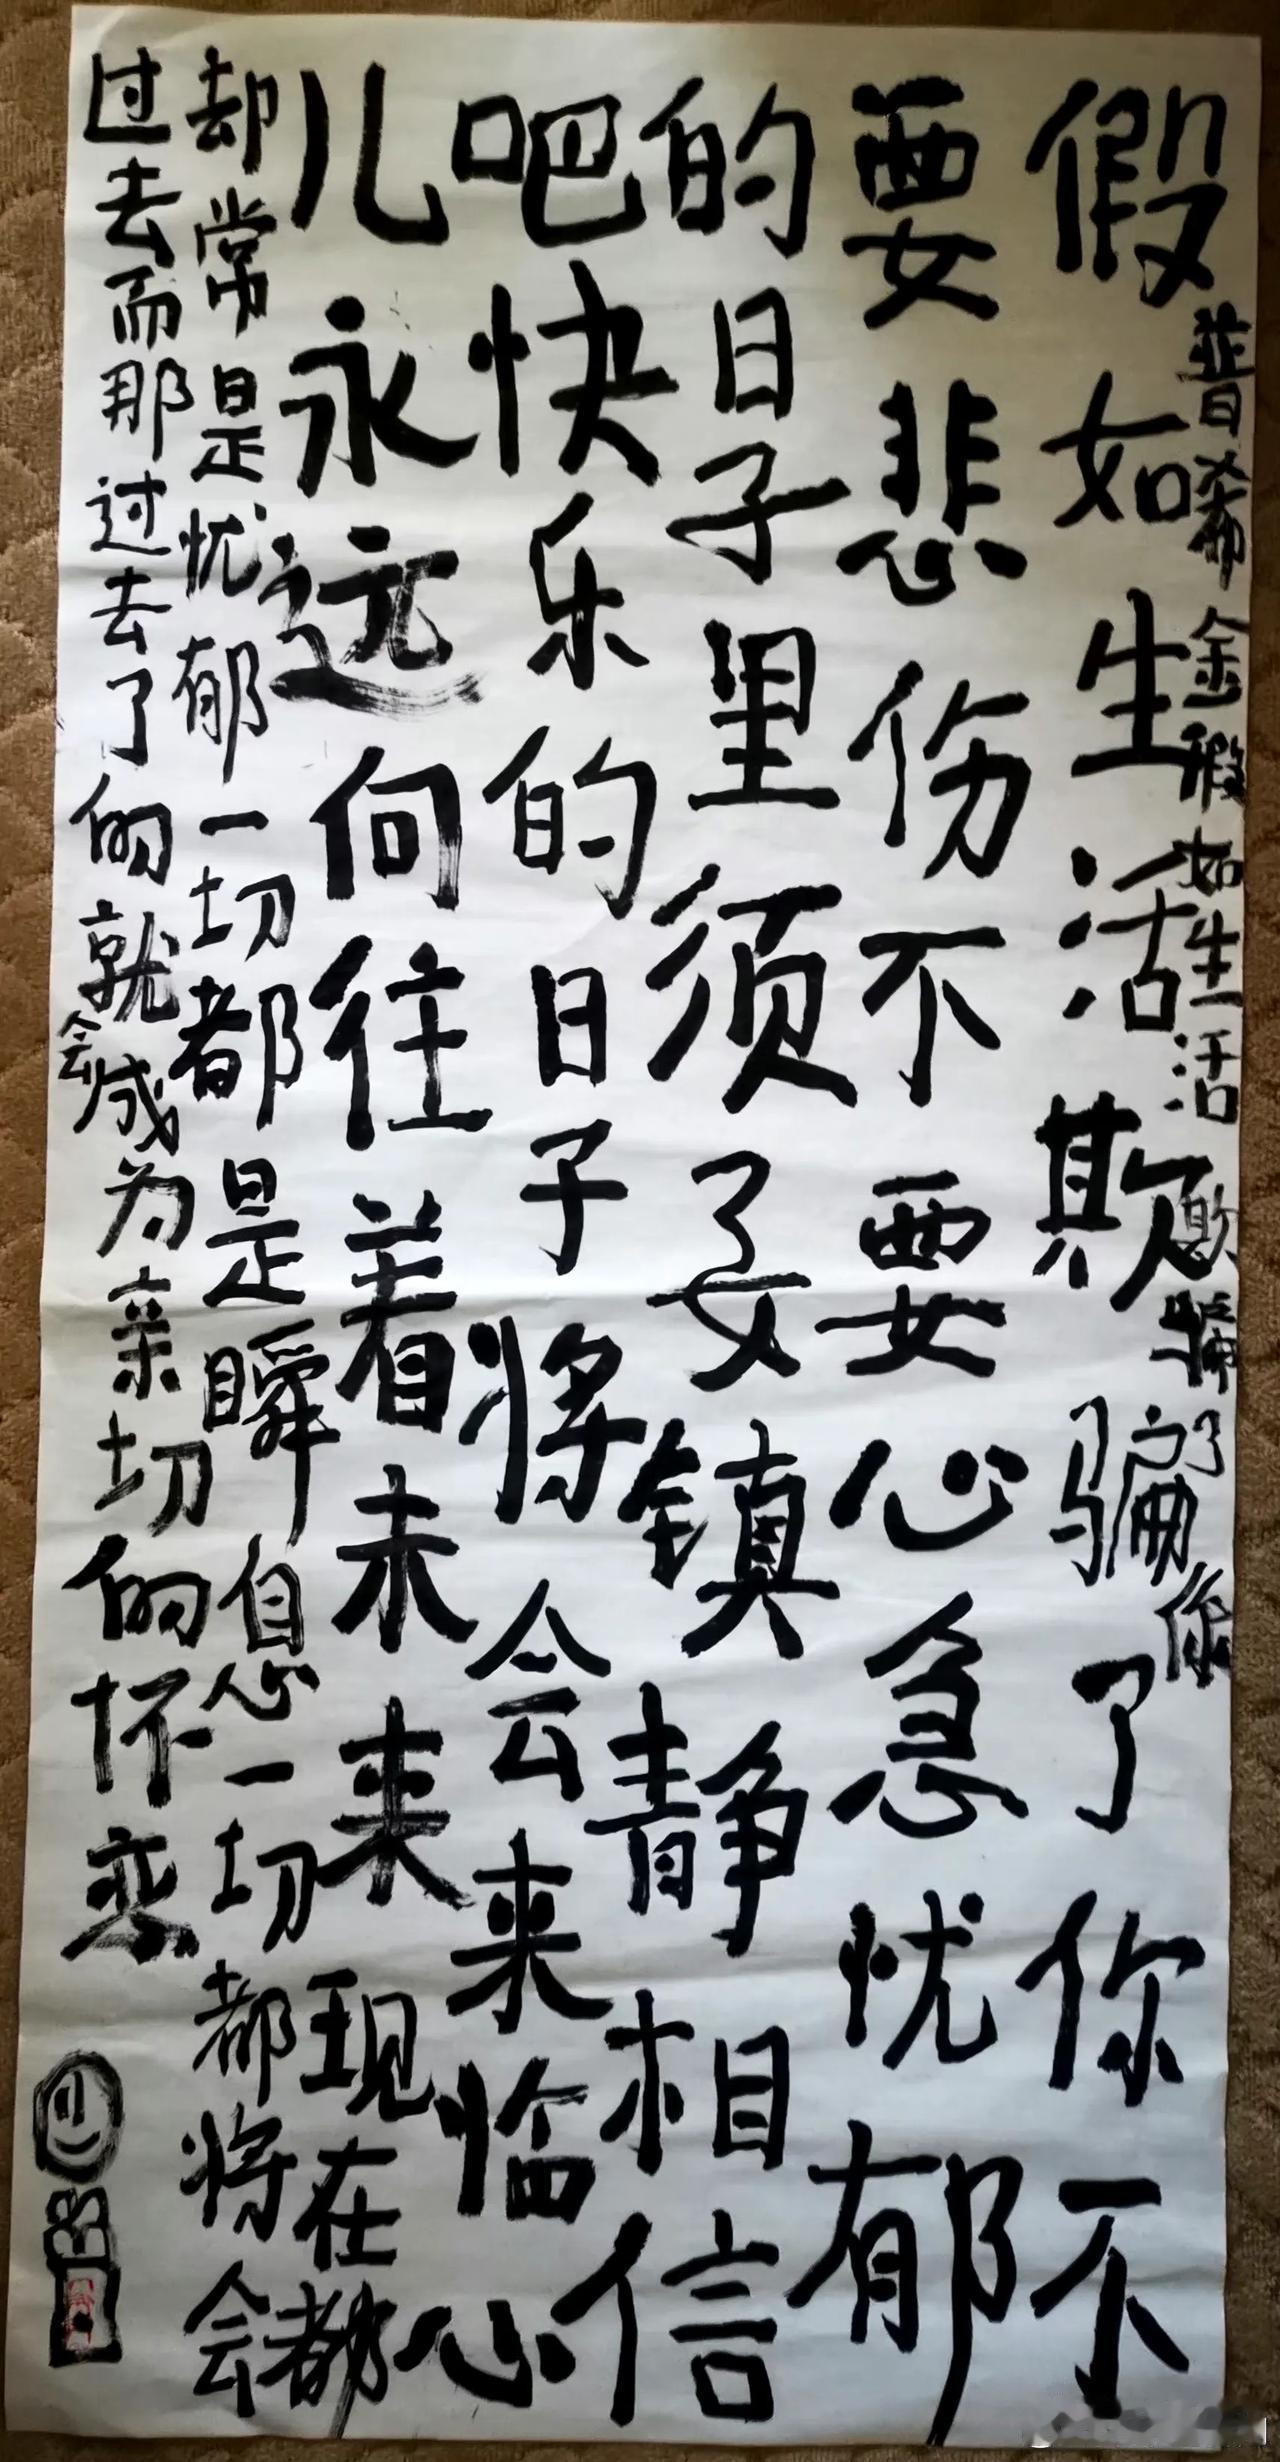 普希金假如生活欺骗了你
假如生活欺骗了你不
要悲伤不要心急忧郁
的日子里须镇静相信
吧快乐的日子将会来临心
儿永远向往着未来现在都
却常是忧郁一切都是瞬息一切都将会
过去而那过去了的就会成为亲切的怀恋